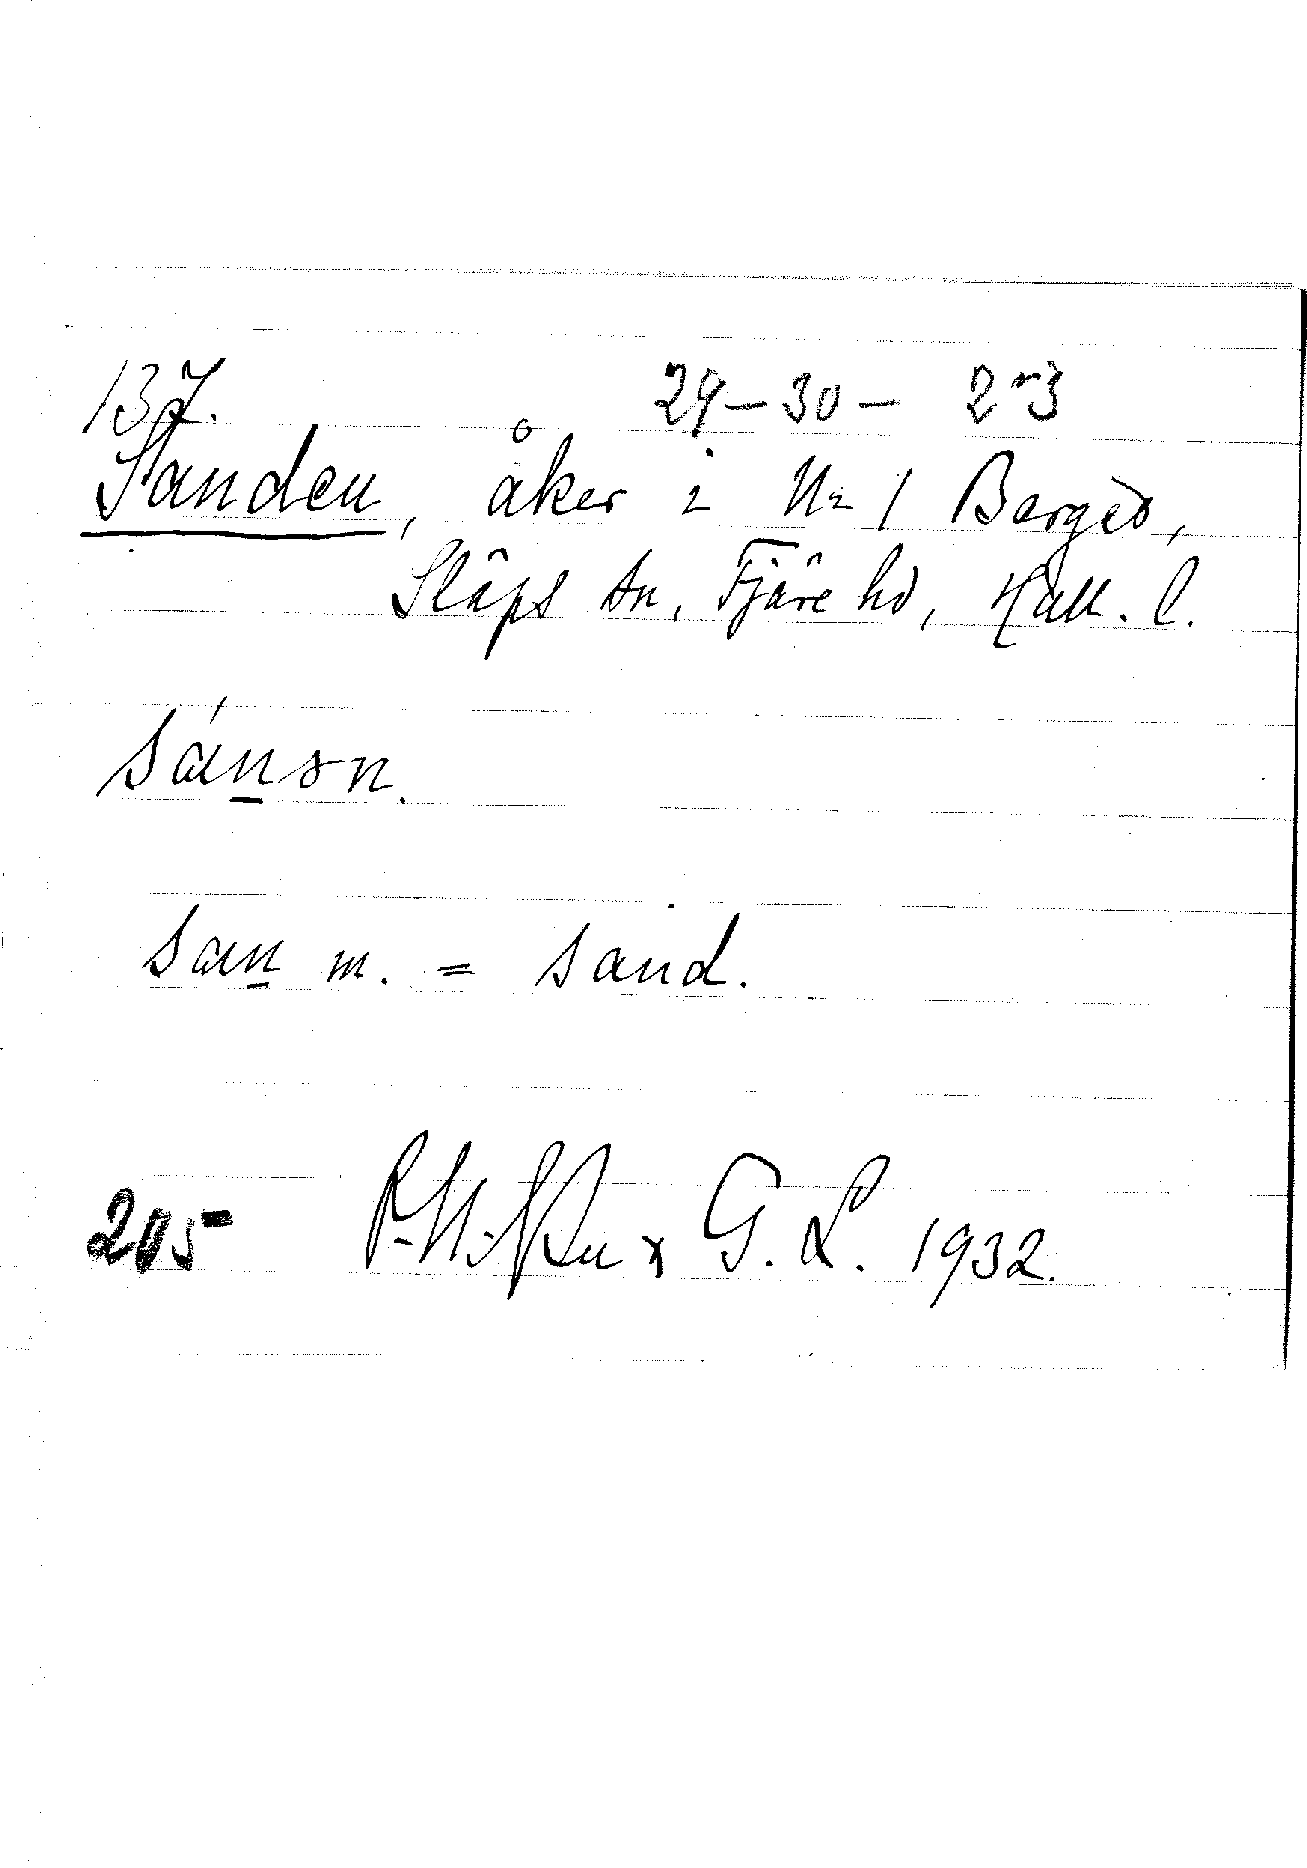 137. 29-30- 2-3
Sanden, åker i Nr 1 Berged,
Släps sn, Fjäre hd, Hall. l.
sánən.
san m. = sand.
205 G. L. 1932.